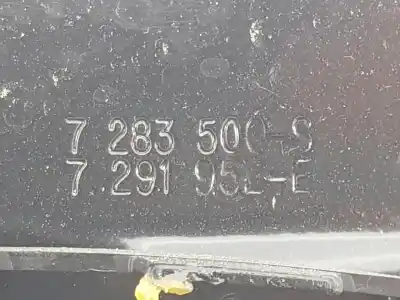 7 283 500-S
7 291 952-E